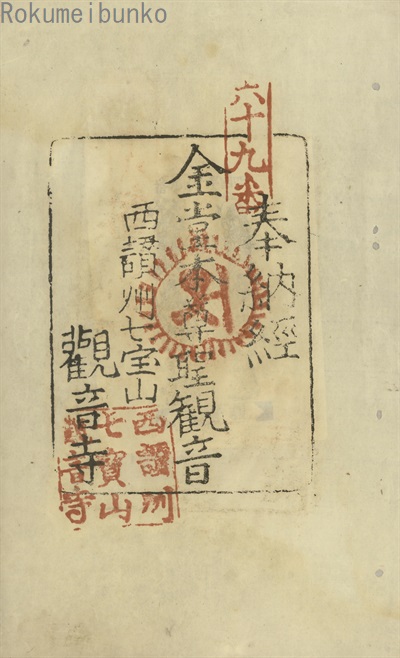 Rokumeibunko
六十九番
奉納經
金堂本尊聖観音
西讃州七宝山
觀音寺
西讚州
七寳山
觀音寺